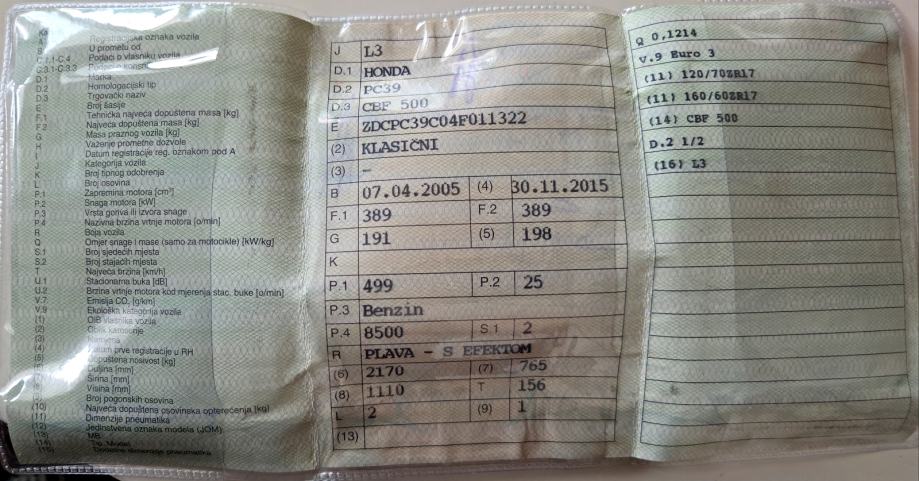 A Registracijska oznaka vozila
B U prometu od
C.1.1-C.4 Podaci o vlasniku vozila
C.3.1-C.3.3
D.1 Marka
D.2 Homologacijski tip
D.3 Trgovački naziv
E Broj šasije
F.1 Tehnička najveća dopuštena masa [kg]
F.2 Najveća dopuštena masa [kg]
G Masa praznog vozila [kg]
H Važenje prometne dozvole
I Datum registracije reg. oznakom pod A
J Kategorija vozila
K Broj tipnog odobrenja
L Broj osovina
P.1 Zapremina motora [cm³]
P.2 Snaga motora [kW]
P.3 Vrsta goriva ili izvora snage
P.4 Nazivna brzina vrtnje motora [o/min]
R Boja vozila
Q Omjer snage i mase (samo za motocikle) [kW/kg]
S.1 Broj sjedećih mjesta
S.2 Broj stajaćih mjesta
T Najveća brzina [km/h]
U.1 Stacionarna buka [dB]
U.2 Brzina vrtnje motora kod mjerenja stac. buke [o/min]
V.7 Emisija CO₂ [g/km]
V.9 Ekološka kategorija vozila
(1) OIB vlasnika vozila
(2) Oblik karoserije
(3) Namjena
(4) Datum prve registracije u RH
(5) Dopuštena nosivost [kg]
Duljina [mm]
Širina [mm]
Visina [mm]
Broj pogonskih osovina
(10) Najveća dopuštena osovinska opterećenja [kg]
(11) Dimenzije pneumatika
(12) Jedinstvena oznaka modela (JOM)
(13) MB
(14) Tip, Model
(15) Dodatne dimenzije pneumatika
J L3
D.1 HONDA
D.2 PC39
D.3 CBF 500
E ZDCPC39C04F011322
(2) KLASIČNI
(3) –
B 07.04.2005 (4) 30.11.2015
F.1 389 F.2 389
G 191 (5) 198
K
P.1 499 P.2 25
P.3 Benzin
P.4 8500 S.1 2
R PLAVA - S EFEKTOM
(6) 2170 (7) 765
(8) 1110 T 156
L 2 (9) 1
(13)
Q 0,1214
V.9 Euro 3
(11) 120/70ZR17
(11) 160/60ZR17
(14) CBF 500
D.2 1/2
(16) L3